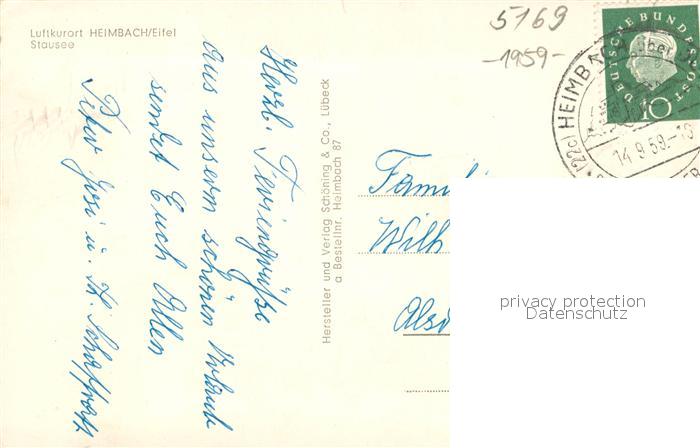 Luftkurort HEIMBACH/Eifel
Stausee
5169
-1959-
Herzl. Feriengrüße
aus unserm schönen Urlaub
sendet Euch Allen
Peter Josi u.
Hersteller und Verlag Schöning & Co., Lübeck
a Bestellnr. Heimbach 87
DEUTSCHE BUNDESPOST
10
(22c) HEIMBACH
über
14.9.59.-18
Famili
Wilh
Alsd
privacy protection
Datenschutz